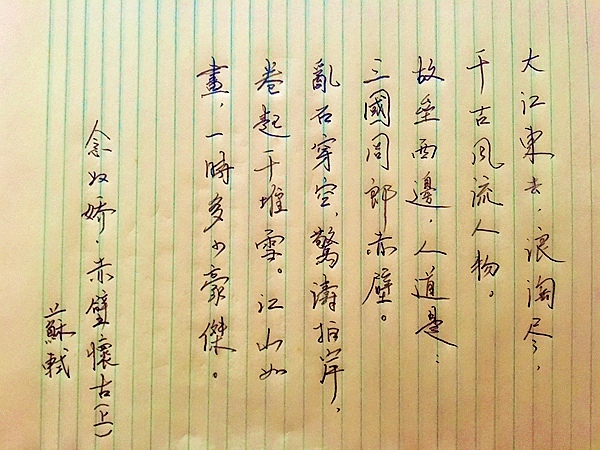 大江東去，浪淘尽，
千古风流人物。
故壘西邊，人道是：
三國周郎赤壁。
亂石穿空，驚濤拍岸，
卷起千堆雪。江山如
畫，一時多少豪傑。
念奴娇·赤壁懷古(上)
蘇軾